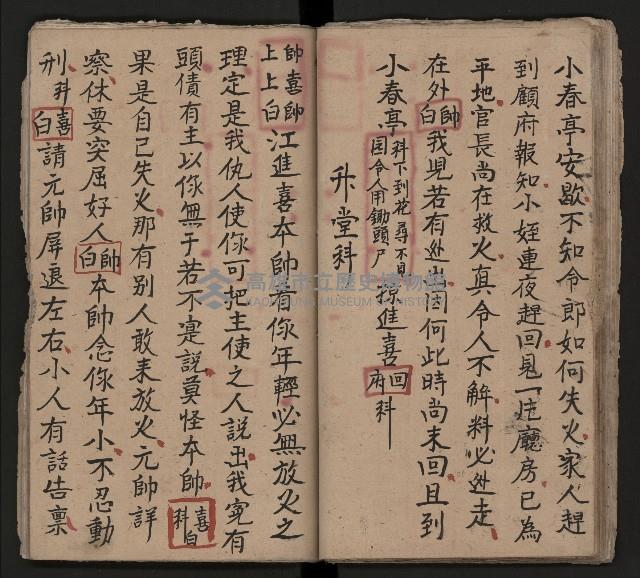 小春亭安歇不知令郎如何失火家人趕
到顧府報知小姪連夜趕回見一座廳房已為
平地官長尚在救火真令人不解料必逃走
在外帥白我児若有逃出因何此時尚未回且到
小春亭科下到花尋不見因令人用鋤頭尸 江進喜回府科
升堂科
帥喜帥上上白江進喜本帥看你年輕必無放火之
理定是我仇人使你可把主使之人説出我寃有
頭債有主以你無干若不寔説莫怪本帥喜科白
果是自己失火那有別人敢来放火元帥詳
察休要突屈好人帥白本帥念你年小不忍動
刑科喜白請元帥屏退左右小人有話告禀
高雄市立歷史博物館
KAOHSIUNG MUSEUM OF HISTORY